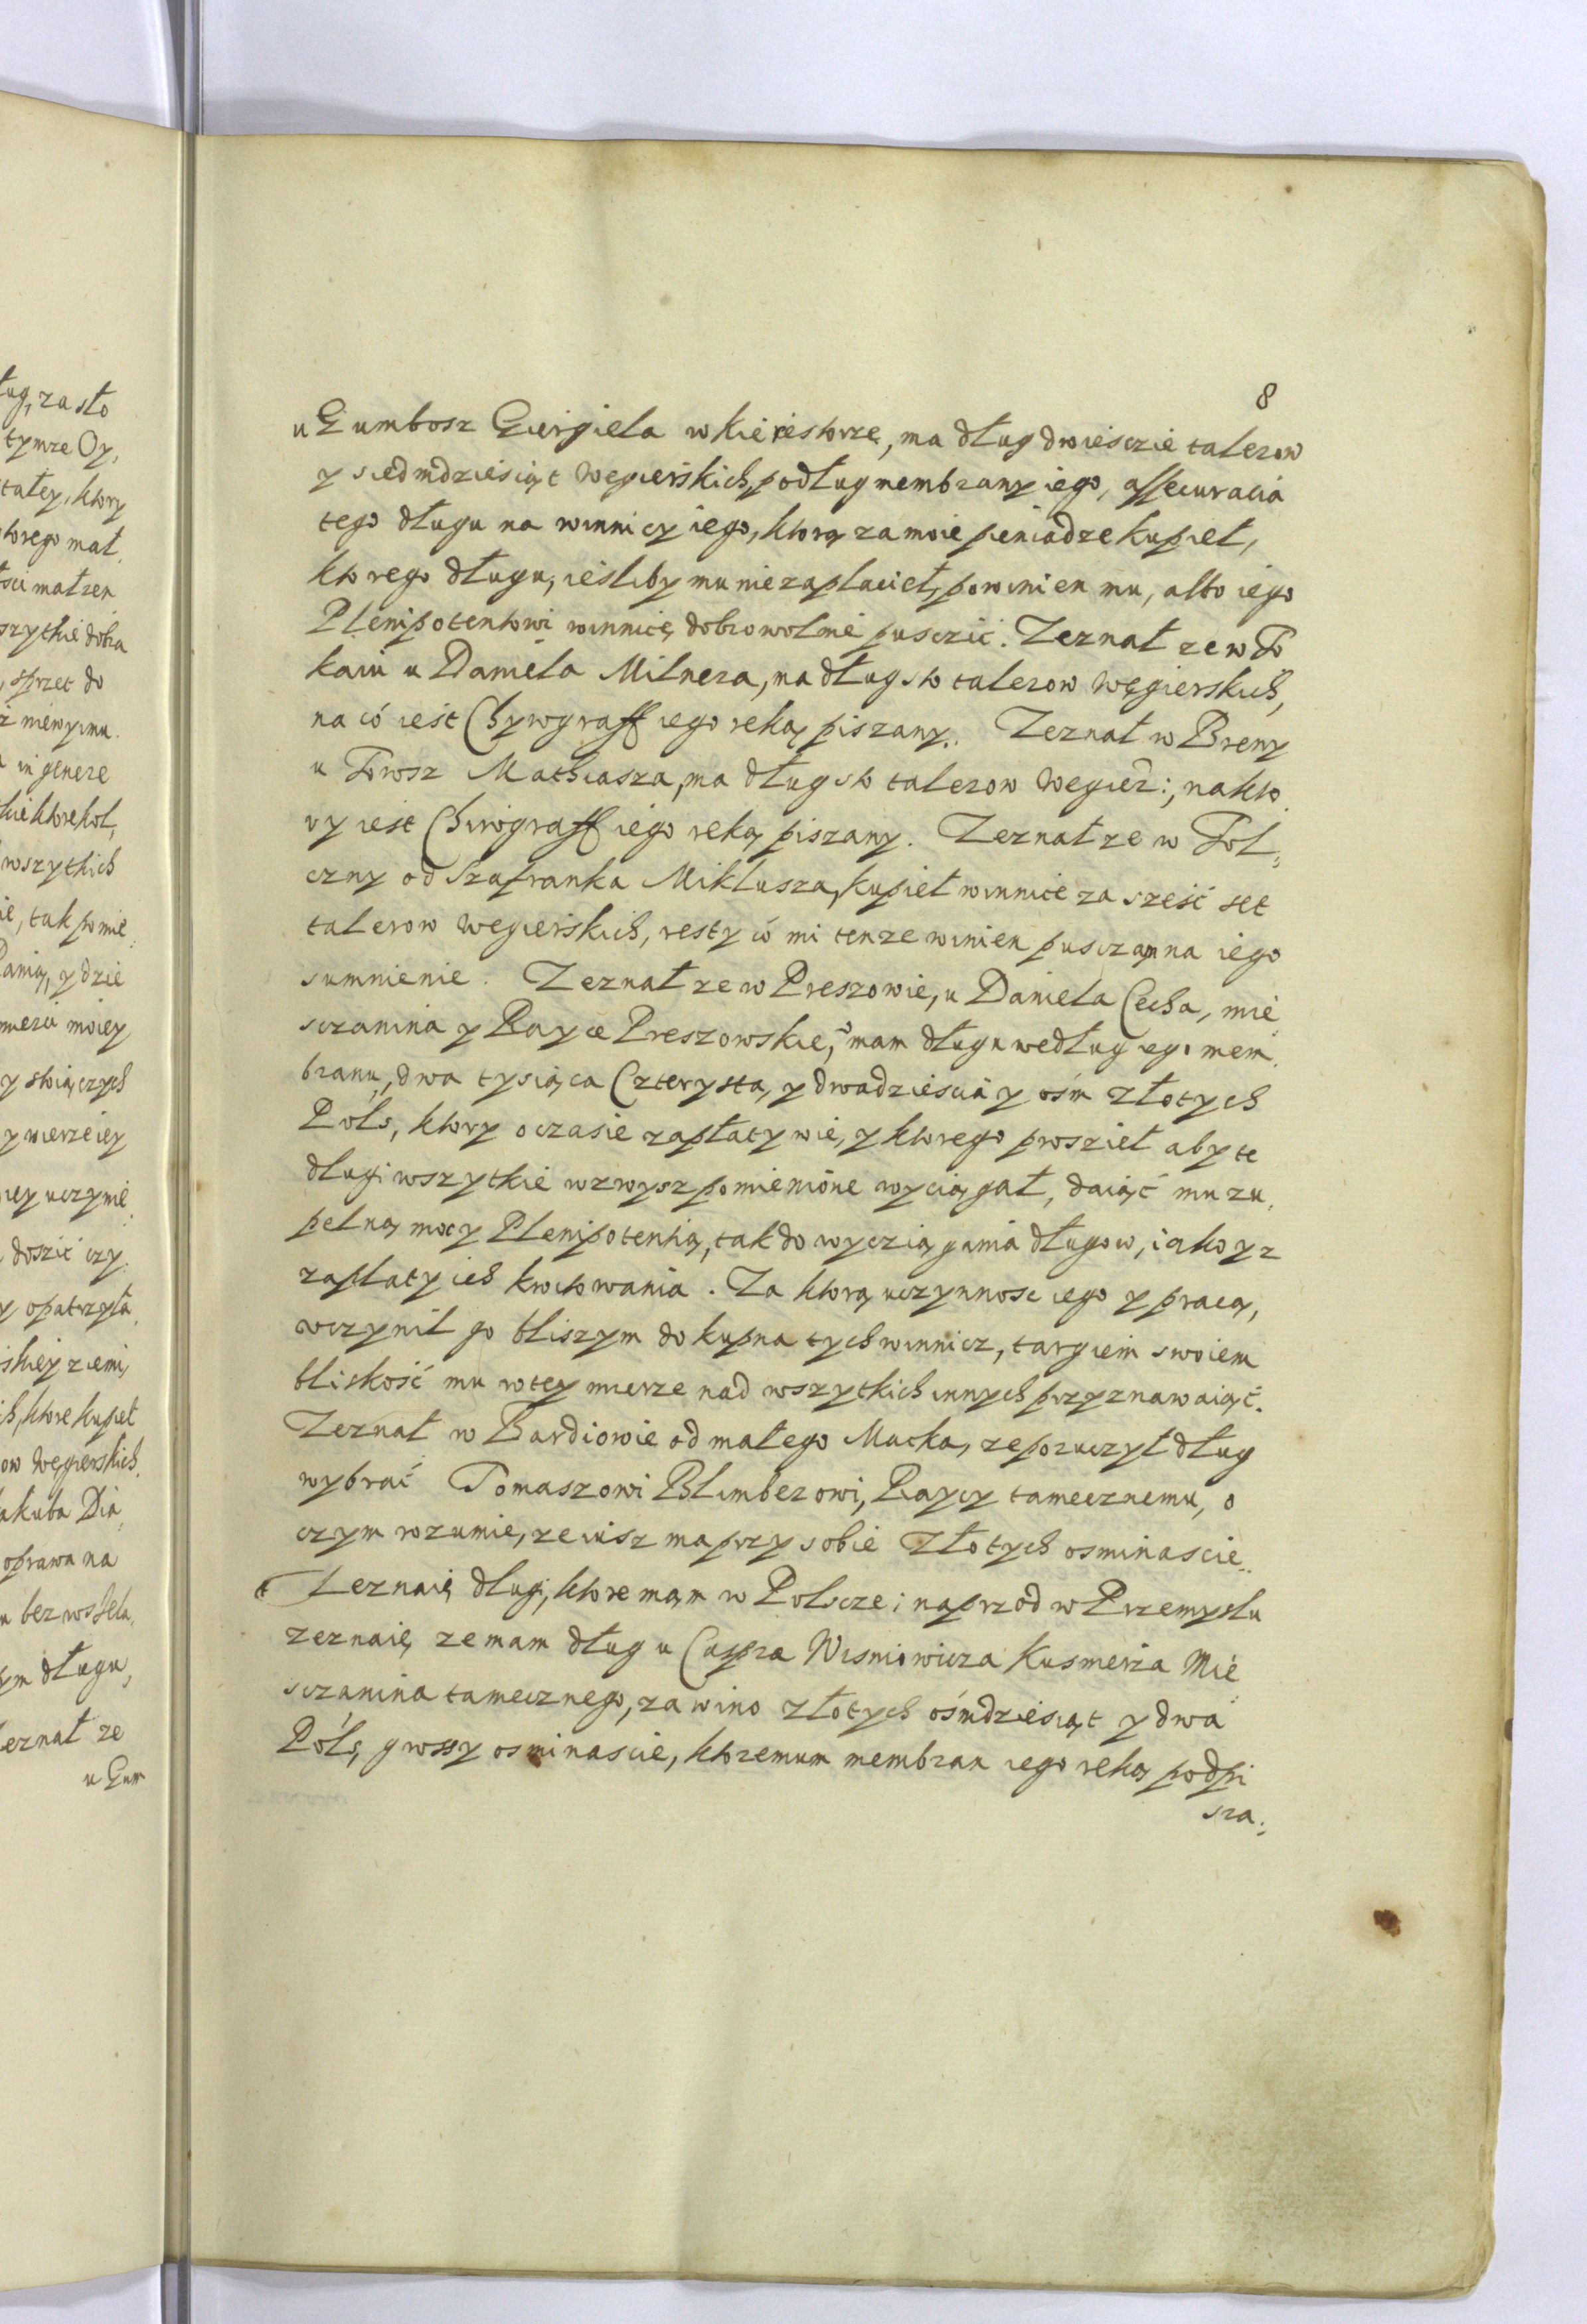 8
u Gumbosz Giergiela w Kieresturze, ma dług dwiesczie talerow
y siedmdziesiąt Węgierskich, podług membrany iego, assecuracia
tego długu na winnicy iego, ktorą za moie pieniadze kupieł,
ktorego długu, iesliby mu nie zapłacieł, powinien mu, albo iego
Plenipotentowi winnicę dobrowolnie pusczić. Zeznał ze w To
kaiu u Daniela Milnera, ma dług sto talerow Węgierskich,
na có iest Chyrograff iego ręką piszany. Zeznał w Breny
u Torosz Mathiasza, ma dług sto talerow Węgier:, na kto
ry iest Chirograff iego ręką piszany. Zeznał ze w Tol
czny od Szafranka Miklusza, kupieł winnice za sześć set
talerow Węgierskich, resty có mi tenze winien pusczam na iego
sumnienie. Zeznał ze w Preszowie, u Daniela Cecha, mie
sczanina y Rayce Preszowskieo, mam długu według iego mem
branu, dwa tysiąca Czterysta, y dwadziescia y ośm Złotych
Póls, ktory o czasie zapłaty wie, y ktorego proszieł aby te
długi wszytkie wzwysz pomienióne wyciągał, daiąć mu zu
pełną moc y Plenipotentią, tak do wycziągania długow, iako y z
zapłaty ich kwitowania. Za ktorą uczynnosc iego y pracą,
uczynił go bliszym do kupna tych winnicz, targiem swoiem
bliskość mu w tey mierze nad wszytkich innych przyznawaiąć.
Zeznał w Bardiowie od małego Macka, ze poruczył dług
wybrać Tomaszowi Blimberowi, Raycy tamecznemu, o
czym rozumie, ze iusz ma przy sobie Złotych osminascie.
Zeznaię długi, ktore mąm w Polscze; naprzod w Przemyslu
zeznaię ze mam dług u Caspra Wisniowicza Kusmierza Mie
sczanina tamecznego, za wino złotych óśmdziesiąt y dwa
Póls, groszy osminascie, ktoremum membran iego ręką podpi
sza.